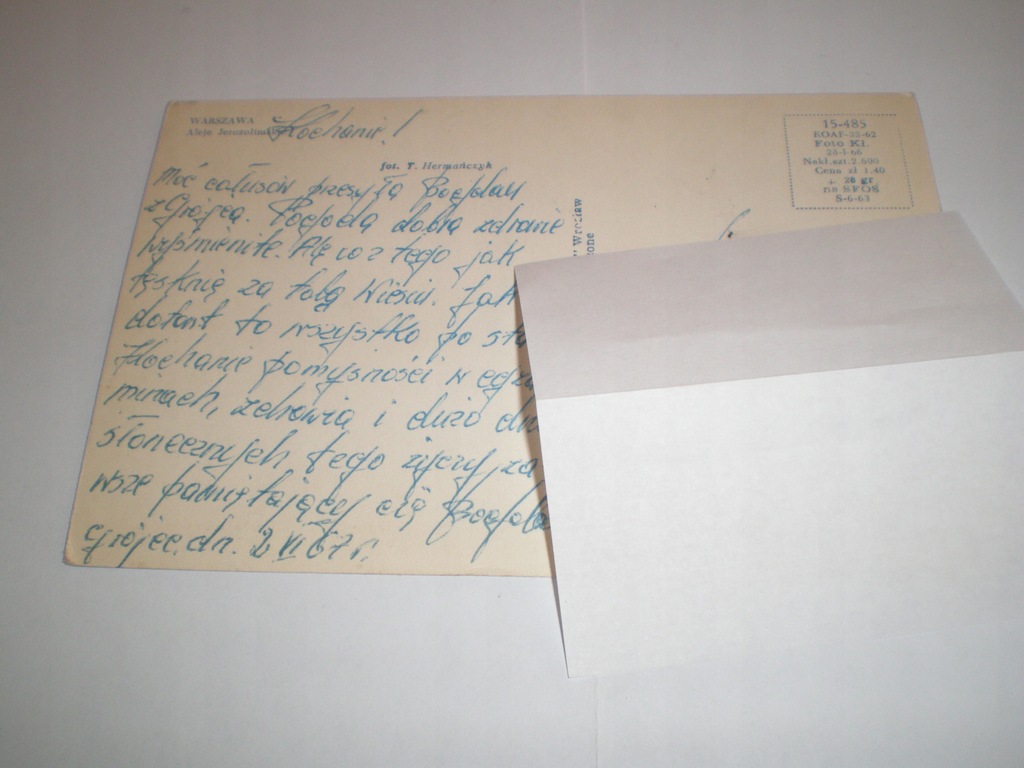 WARSZAWA
Aleje Jerozolimskie
Kochanie!
fot. T. Hermańczyk
Moc całusów przesyła Bogdan
z Grójca. Pogoda dobra zdrowie
wyśmienite. Ale co z tego jak
tęsknię za tobą Wiesiu. Jak
dotant to wszystko po sta
Kochanie pomyśności w egza
minach, zdrowia i dużo dni
słonecznych tego życzy za
wsze pamiętający cię Bogda
Grójec. dn. 2 VI 67 r.
Wrocław
15-485
ROAF-33-62
Foto Kl.
28-I-66
Nakl.szt:2.600
Cena zł 1.40
+ 20 gr
na SFOS
S-6-63